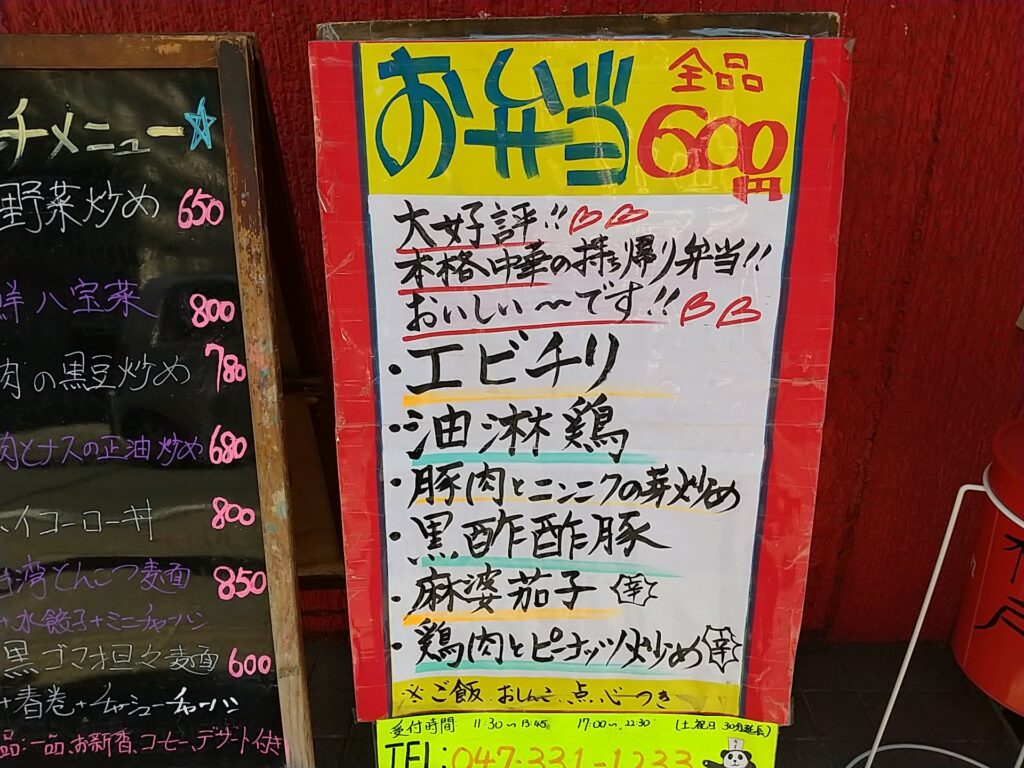 チメニュー
野菜炒め 650
鮮八宝菜 800
肉の黒豆炒め 780
肉とナスの正油炒め 680
ホイコーロー丼 800
台湾とんこつ麺 850
+水餃子+ミニチャーハン
黒ゴマオ旦々麺 600
+春巻+チャーシューチャーハン
品:一品、お新香、コーヒー、デザート付き
お弁当 全品 600円
大好評!!
本格中華の持ち帰り弁当!!
おいしい〜です!!
・エビチリ
・油淋鶏
・豚肉とニンニクの芽炒め
・黒酢酢豚
・麻婆茄子 辛
・鶏肉とピーナッツ炒め 辛
※ご飯 おしんこ、点心つき
受付時間 11:30〜15:45 17:00〜22:30 (土.祝日 30分延長)
TEL:047-331-1233